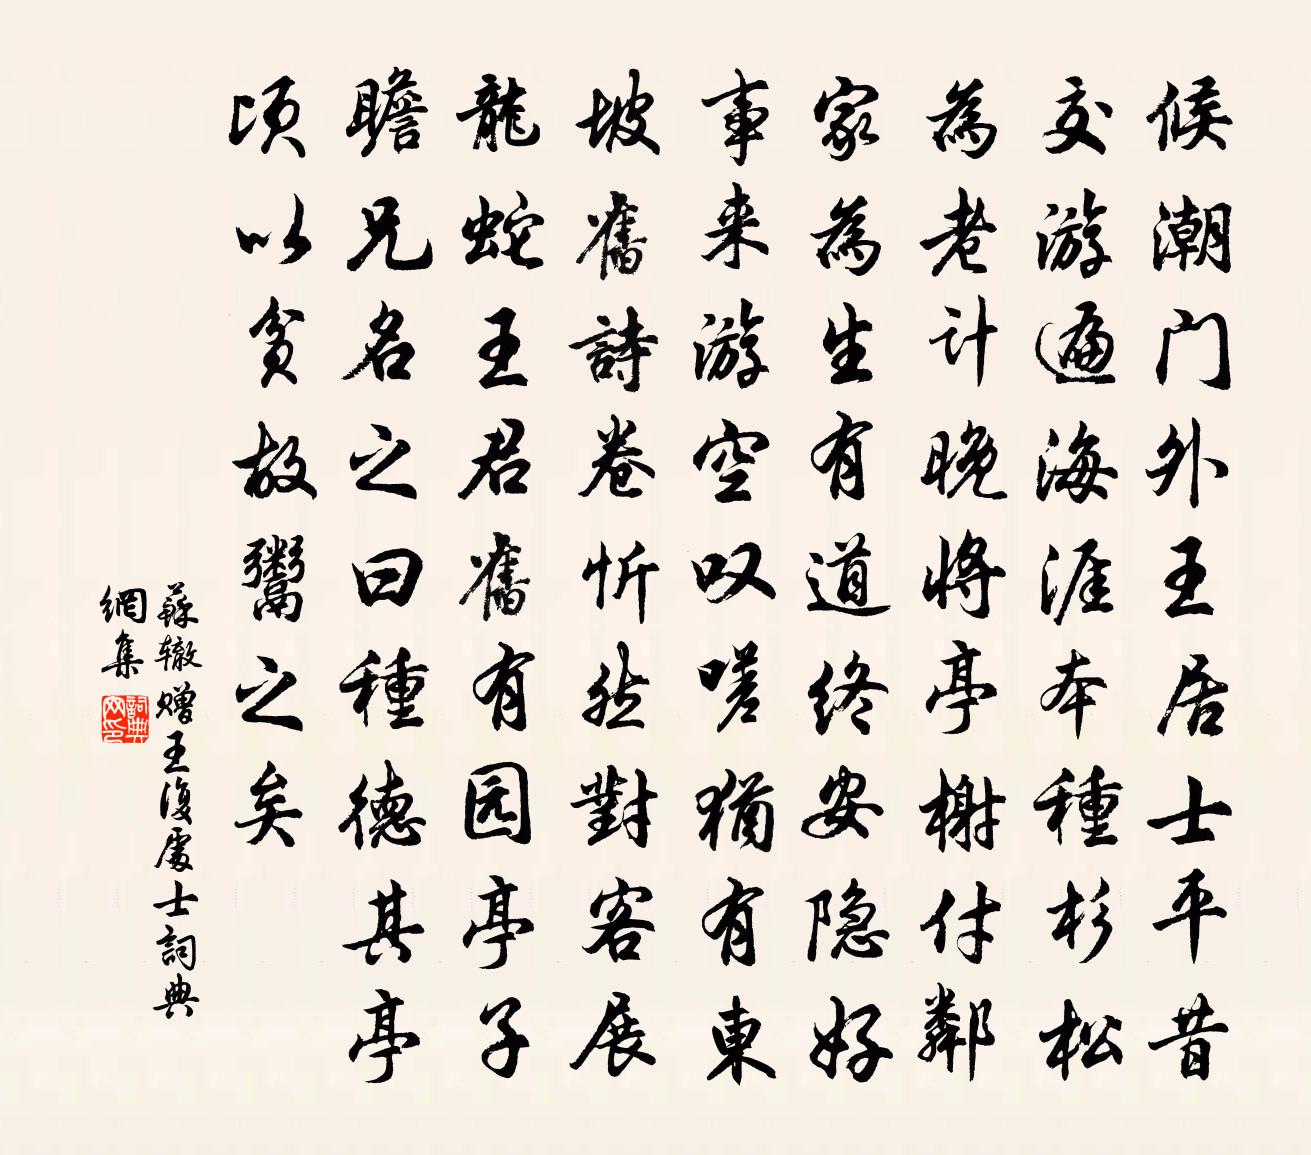 候潮门外王居士平昔
交游遍海涯本種杉松
為老计晚將亭榭付鄰
家為生有道终安隐好
事来游空叹嗟猶有東
坡舊詩卷忻然對客展
龍蛇王君舊有园亭子
瞻兄名之曰種德其亭
頃以贫故鬻之矣
蘇辙赠王復處士詞典
網集
詞典网印